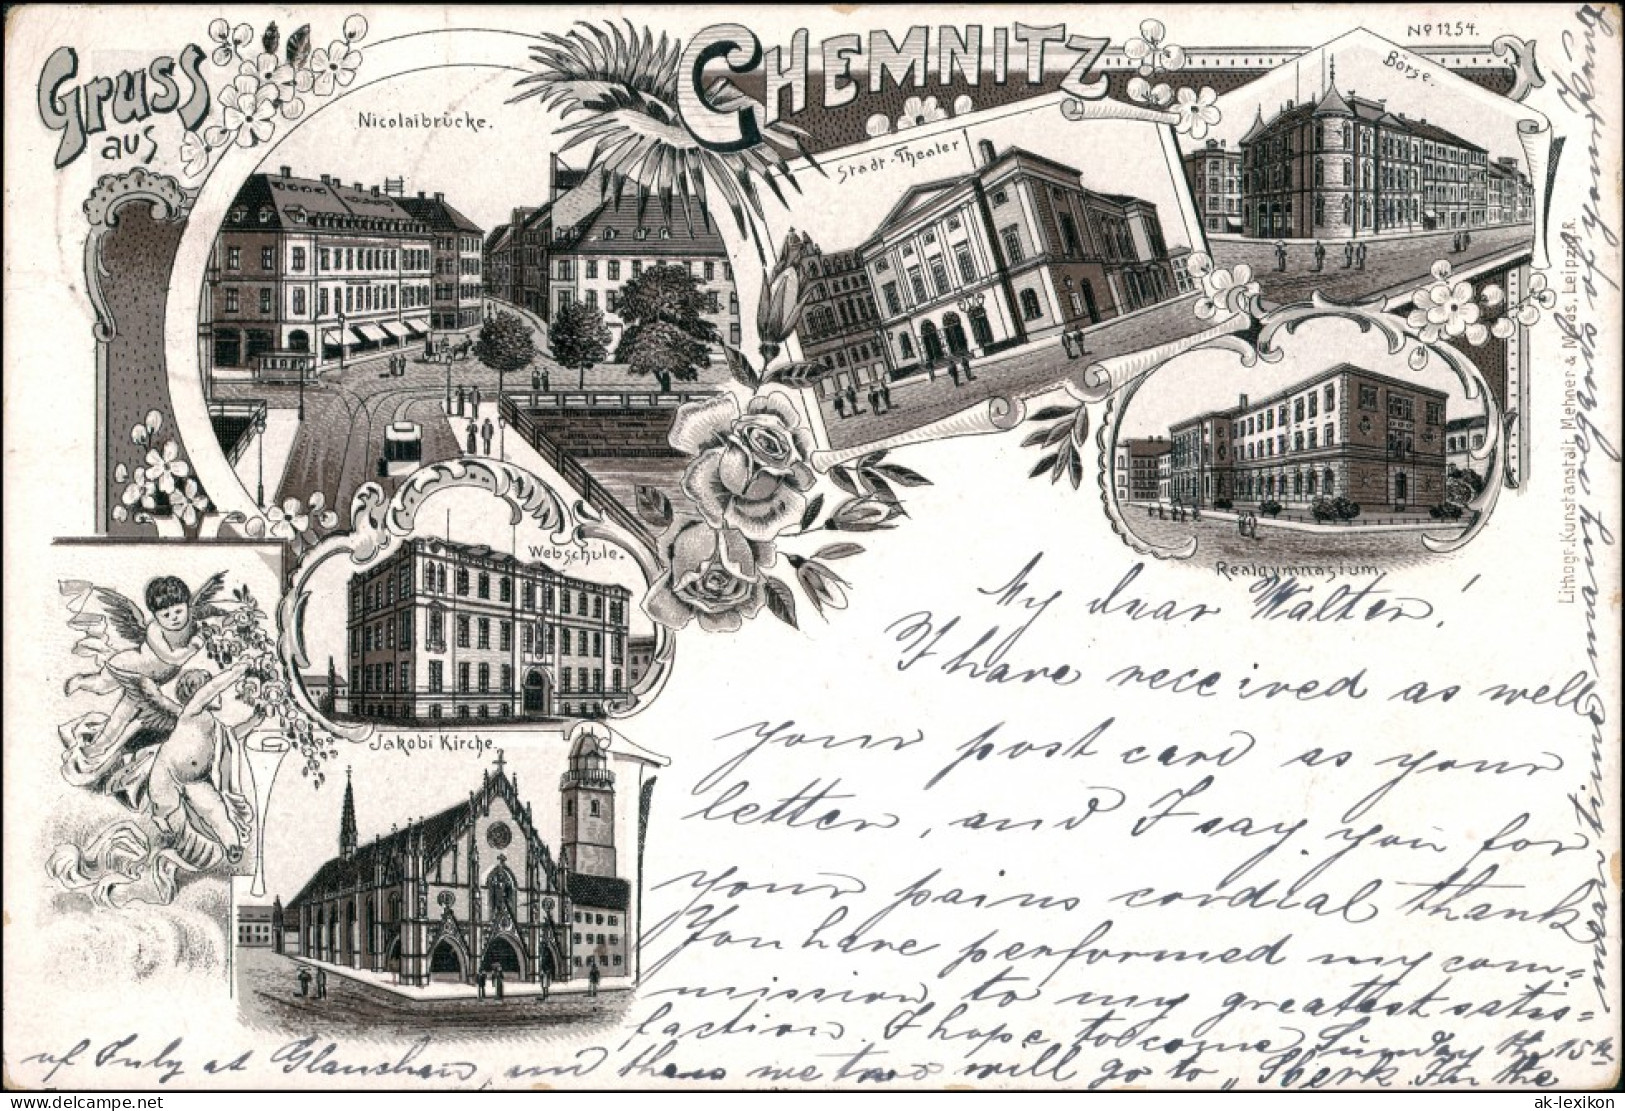 Gruss
aus
CHEMNITZ
Nº 1254.
Nicolaibrücke.
Stadt-Theater
Börse.
Realgymnasium.
Webschule.
Jakobi Kirche.
Lithogr. Kunstanstalt Mehner & Maas, Leipzig R.
My dear Walter!
I have received as well
your post card as your
letter, and I say you for
your pains cordial thank
You have performed my com=
mission to my greatest satis=
faction. I hope to come Sunday the 15th
of July at Glauchau, and then we two will go to " For the
ak-lexikon.com
ak-lexikon